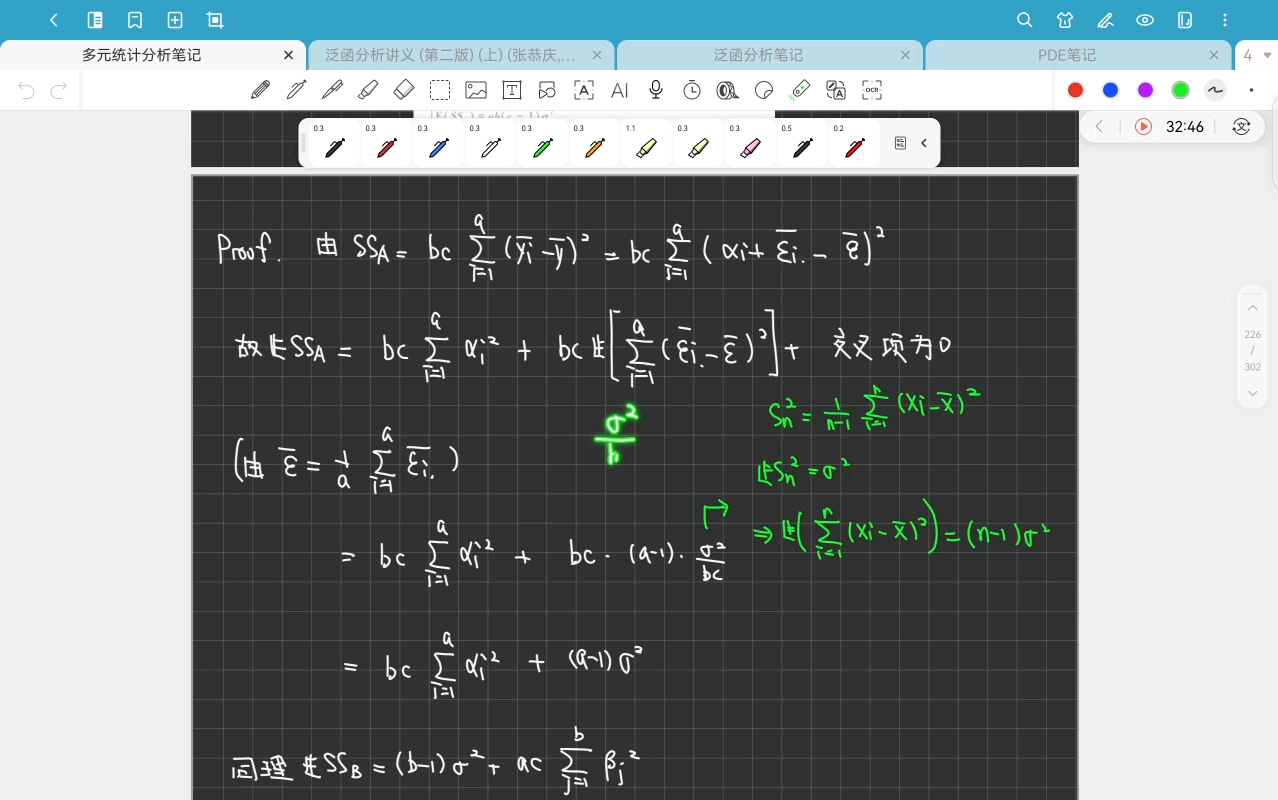 多元统计分析笔记 泛函分析讲义 (第二版) (上) (张恭庆,... 泛函分析笔记 PDE笔记 4
AI OCR
E(SS ) = ab(c − 1)σ²
0.3 0.3 0.3 0.3 0.3 0.3 1.1 0.3 0.3 0.5 0.2
32:46
Proof. 由 SS_A = bc ∑_{i=1}^{a} (ȳ_i − ȳ)² = bc ∑_{i=1}^{a} (α_i + ε̄_{i.} − ε̄)²
故 𝔼SS_A = bc ∑_{i=1}^{a} α_i² + bc 𝔼[∑_{i=1}^{a} (ε̄_{i.} − ε̄)²] + 交叉项为0
226
/
302
S_n² = 1/(n−1) ∑_{i=1}^{n} (X_i − X̄)²
σ²/n
(由 ε̄ = 1/a ∑_{i=1}^{a} ε̄_{i.})
𝔼S_n² = σ²
⇒ 𝔼(∑_{i=1}^{n} (X_i − X̄)²) = (n−1)σ²
= bc ∑_{i=1}^{a} α_i² + bc · (a−1) · σ²/bc
= bc ∑_{i=1}^{a} α_i² + (a−1)σ²
同理 𝔼SS_B = (b−1)σ² + ac ∑_{j=1}^{b} β_j²